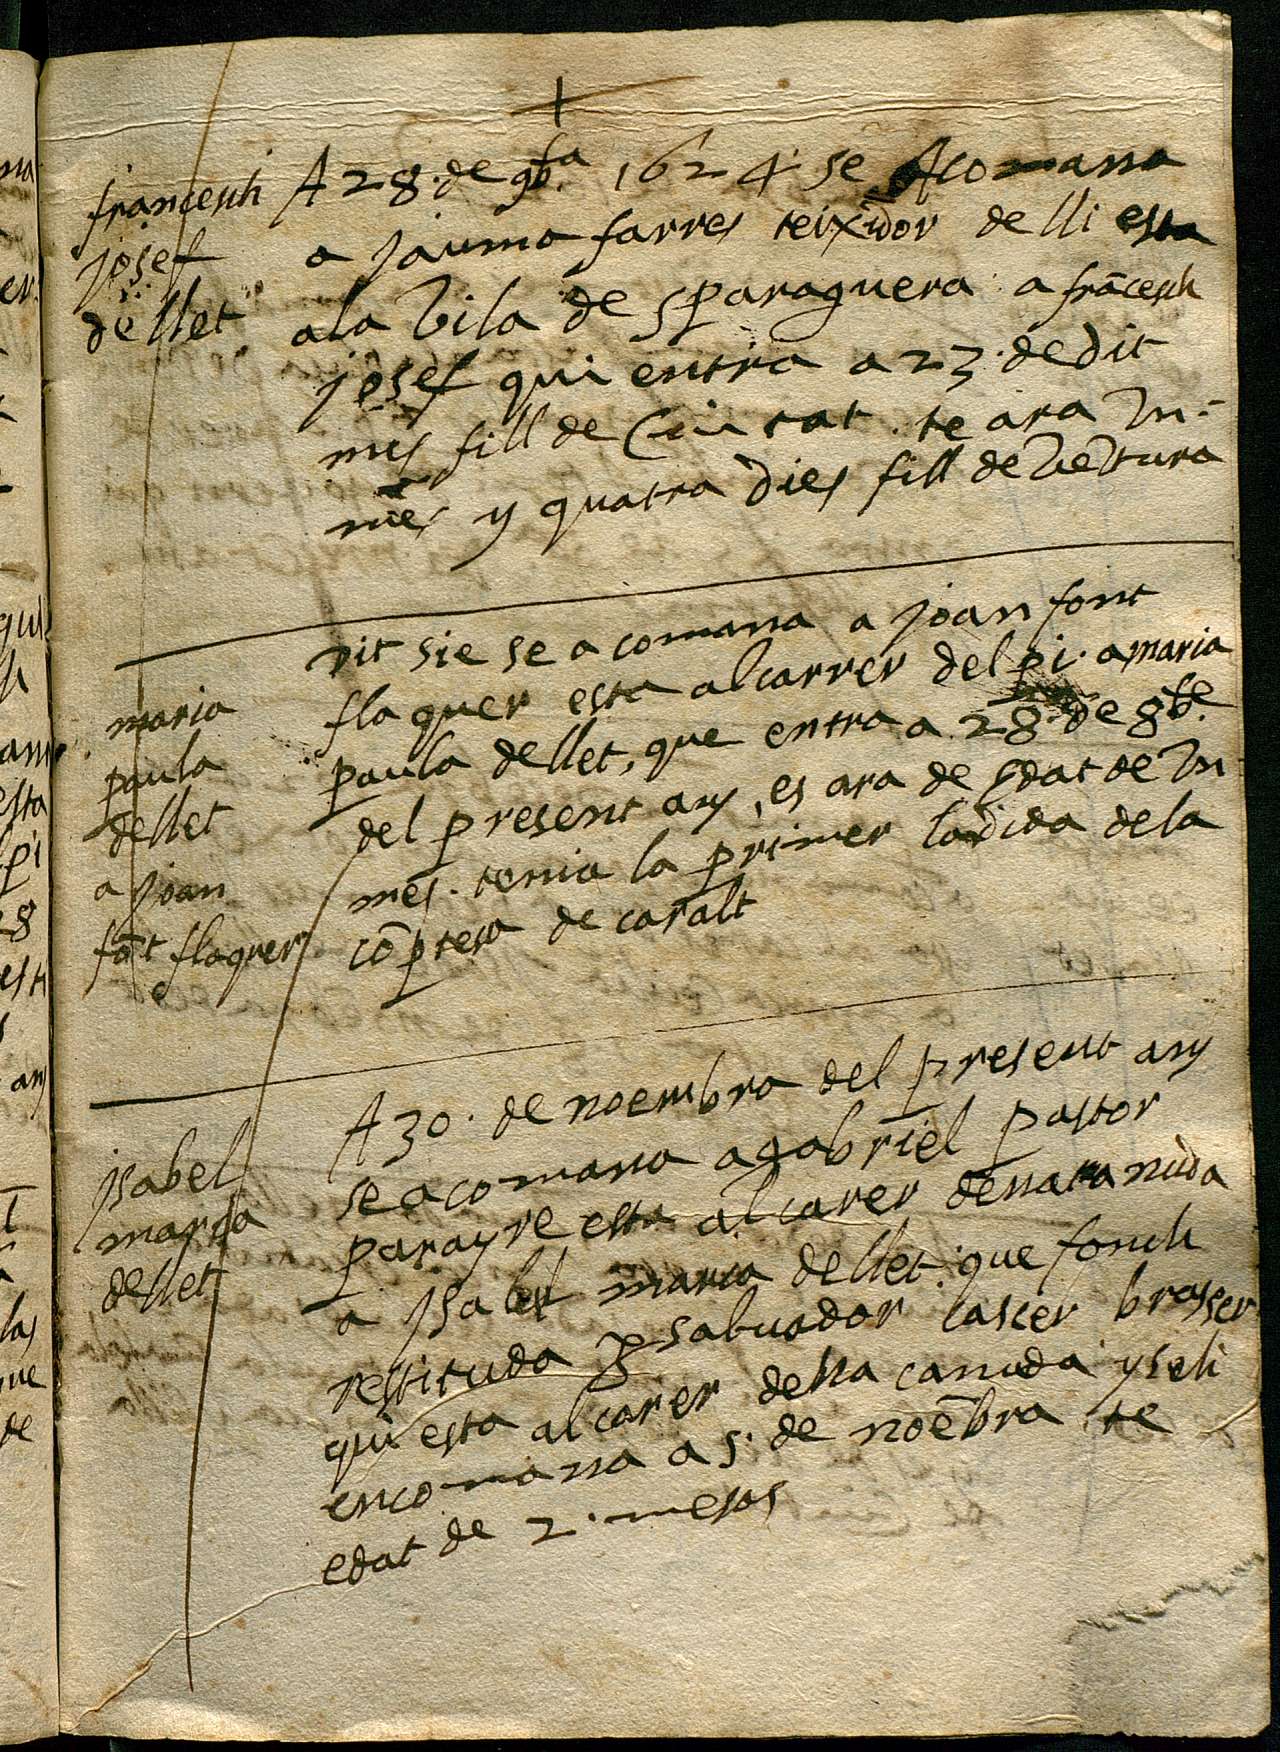 francesch
josef
de llet
A 28. de 9bra 1624 se Acomana
a jauma farres teixidor de lli esta
ala Vila de sparaguera a frācesch
josef qui entra a 23. de dit
mes fill de Ciutat . te ara Un
mes y quatra dies fill de Ventura
maria
paula
dellet
a joan
fōt flaquer
Dit sie se acomana a joan font
flaquer esta al carrer del pi. a maria
paula dellet, que entra a 28. de 8bre
del present any, es ara de edat de Un
mes. tenia la primer la dida dela
cōptesa de caralt
Isabel
maria
dellet
A 30. de noembra del present any
se acomana a gabriel pastor
parayre esta al carer dena canuda
a Isabel maria dellet. que fonch
restituda p salvador casçer brasser
qui esta al carer della canuda y se li
encomana a 5. de noēbra te
edat de 2. mesos